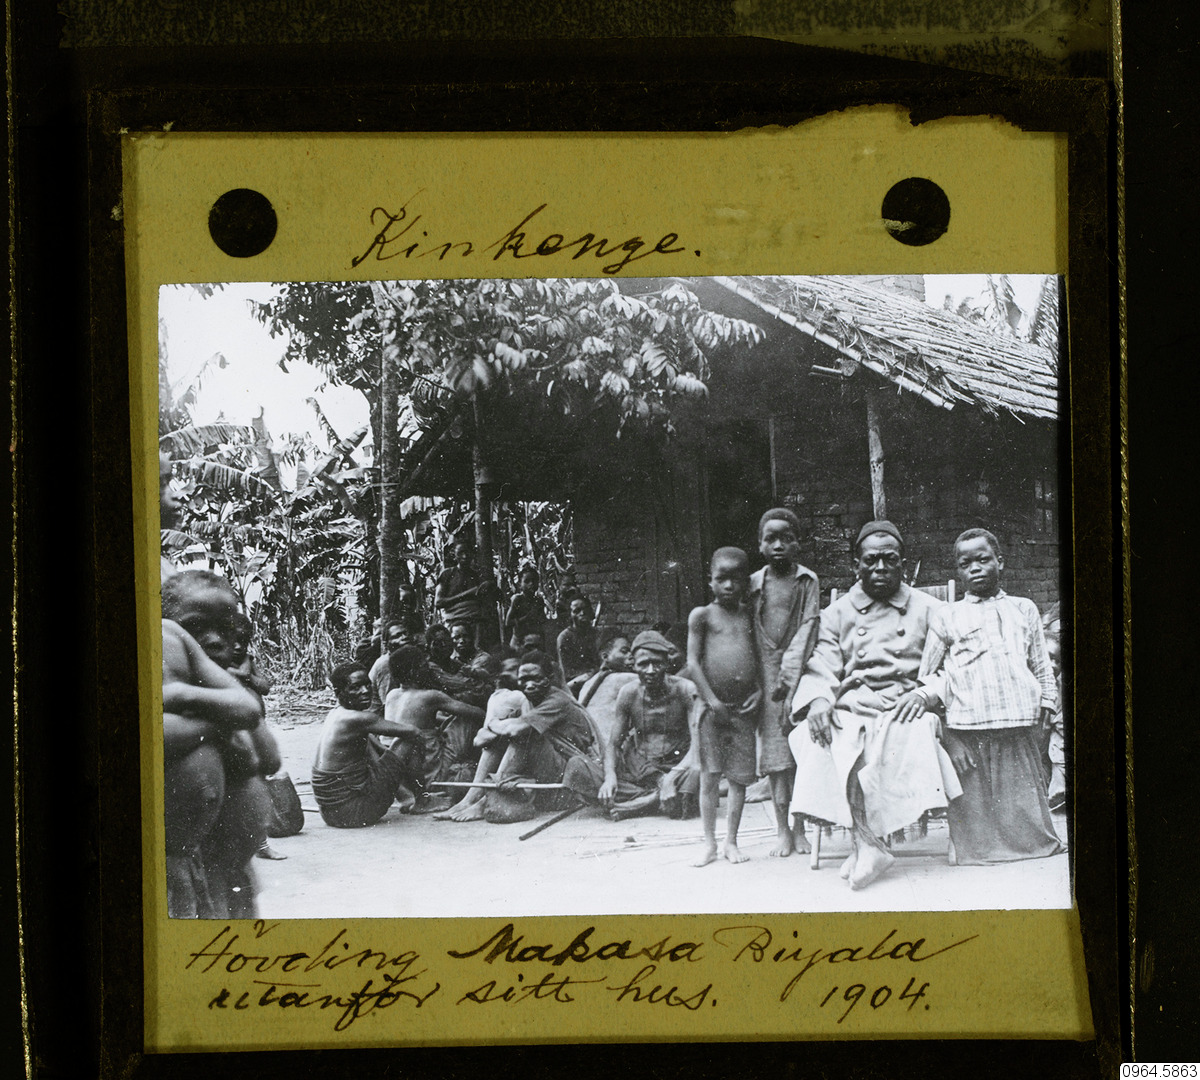 Kinkenge.
Hövding Makasa Biyala
utanför sitt hus. 1904.
0964.5863